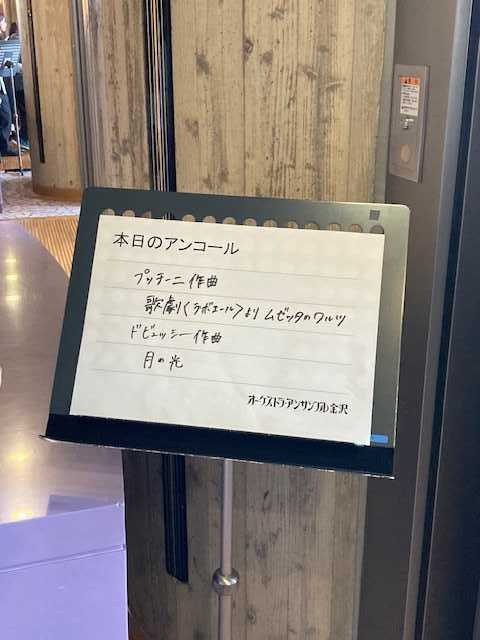 本日のアンコール
プッチーニ作曲
歌劇〈ラボエール〉より ムゼッタのワルツ
ドビュッシー作曲
月の光
オーケストラ・アンサンブル金沢